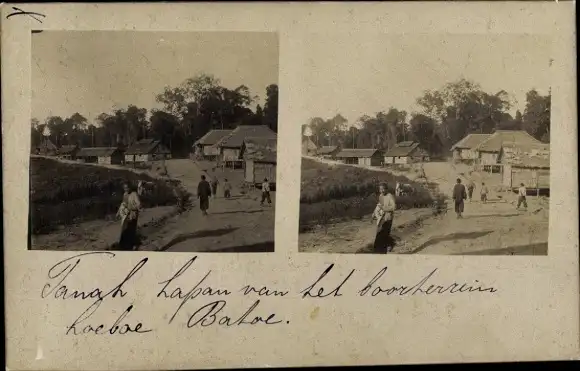 Tanah Lapan van het boorterrein
Loeboe Batoe.